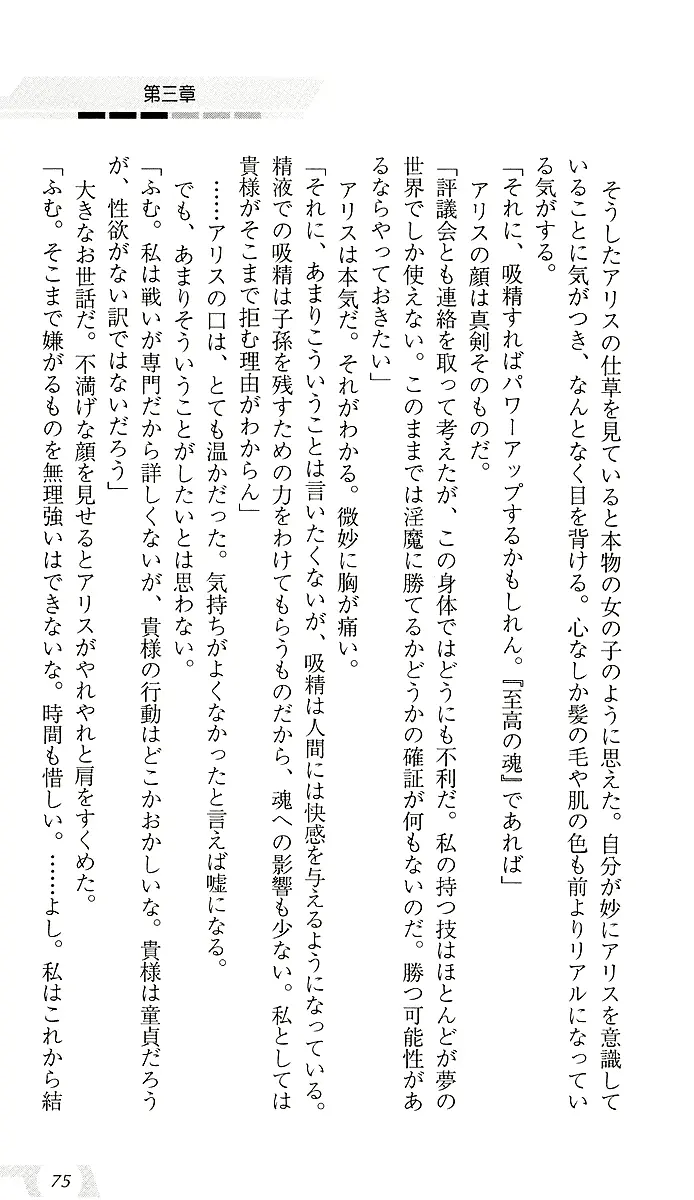 第三章
　そうしたアリスの仕草を見ていると本物の女の子のように思えた。自分が妙にアリスを意識して
いることに気がつき、なんとなく目を背ける。心なしか髪の毛や肌の色も前よりリアルになってい
る気がする。
「それに、吸精すればパワーアップするかもしれん。『至高の魂』であれば」
　アリスの顔は真剣そのものだ。
「評議会とも連絡を取って考えたが、この身体ではどうにも不利だ。私の持つ技はほとんどが夢の
世界でしか使えない。このままでは淫魔に勝てるかどうかの確証が何もないのだ。勝つ可能性があ
るならやっておきたい」
　アリスは本気だ。それがわかる。微妙に胸が痛い。
「それに、あまりこういうことは言いたくないが、吸精は人間には快感を与えるようになっている。
精液での吸精は子孫を残すための力をわけてもらうものだから、魂への影響も少ない。私としては
貴様がそこまで拒む理由がわからん」
　……アリスの口は、とても温かだった。気持ちがよくなかったと言えば嘘になる。
　でも、あまりそういうことがしたいとは思わない。
「ふむ。私は戦いが専門だから詳しくないが、貴様の行動はどこかおかしいな。貴様は童貞だろう
が、性欲がない訳ではないだろう」
　大きなお世話だ。不満げな顔を見せるとアリスがやれやれと肩をすくめた。
「ふむ。そこまで嫌がるものを無理強いはできないな。時間も惜しい。……よし。私はこれから結
75